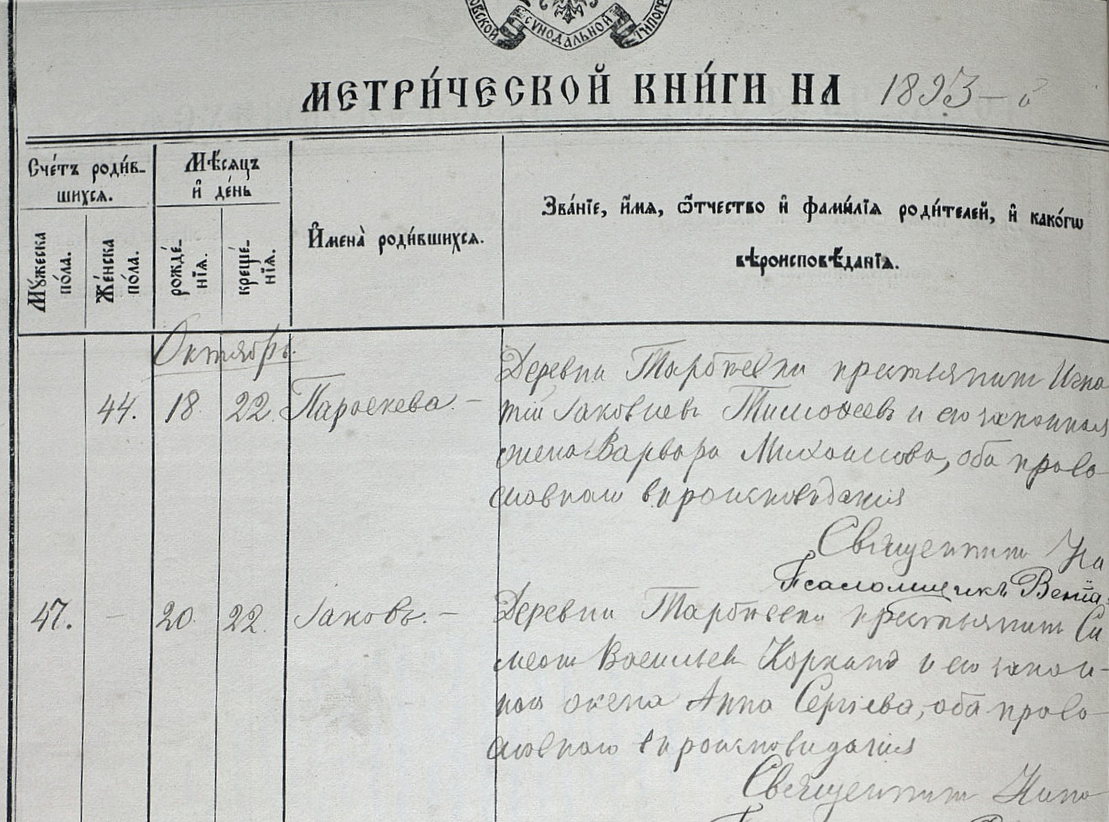 СѴНОДАЛЬНОЙ
МЕТРИ́ЧЕСКОЙ КНИ́ГИ НА 1893-й
Сче́тъ роди́в-
шихсѧ.
Мѣ́сѧцъ
и҆ де́нь
И҆мена̀ роди́вшихсѧ.
Зва́нїе, и҆́мѧ, ѻ҆́тчество и҆ фами́лїѧ роди́телей, и҆ како́гѡ
вѣроисповѣ́данїѧ.
Мꙋ́жеска
по́ла.
Же́нска
по́ла.
рожде́-
нїѧ.
креще́-
нїѧ.
Октябрь.
44. 18. 22. Параскева. –
Деревни крестьянинъ Игна-
тій Іаковлевъ Тимофеевъ и его законная
жена Варвара Михаилова, оба право-
славнаго вѣроисповѣданія
Священникъ
Псаломщикъ
47. – 20. 22. Іаковъ. –
Деревни крестьянинъ Си-
меонъ Васильевъ и его закон-
ная жена Анна Сергіева, оба право-
славнаго вѣроисповѣданія
Священникъ